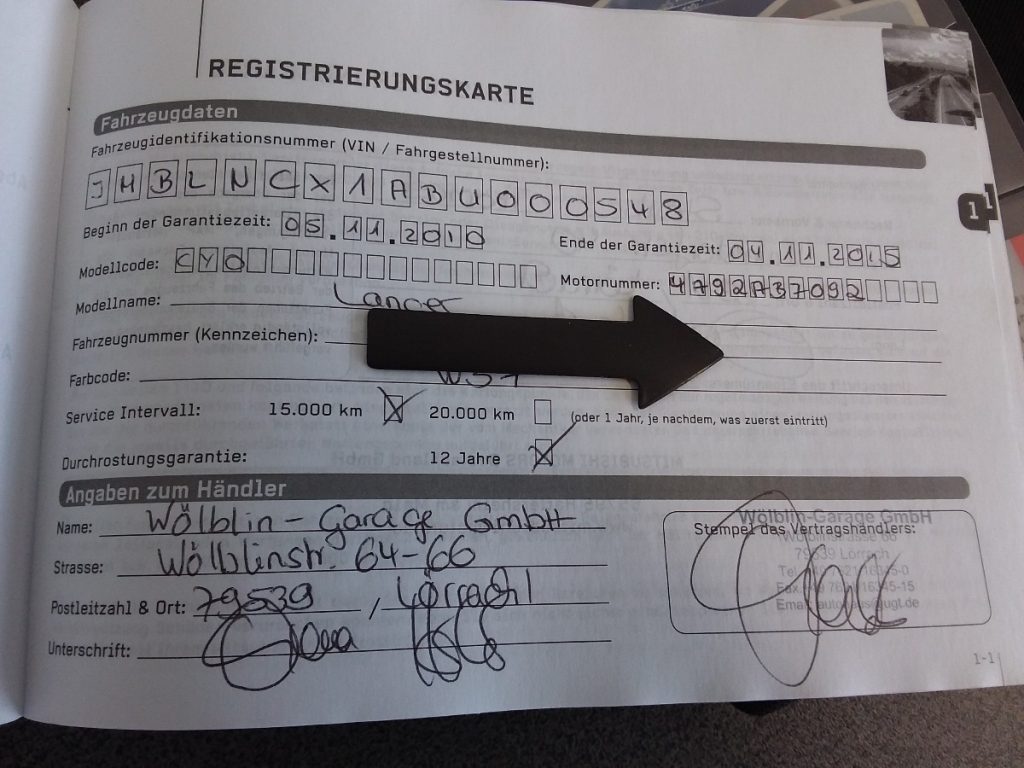 REGISTRIERUNGSKARTE
Fahrzeugdaten
Fahrzeugidentifikationsnummer (VIN / Fahrgestellnummer):
JMBLNCX1ABU000548
Beginn der Garantiezeit: 05.11.2010 Ende der Garantiezeit: 04.11.2015
Modellcode: CY0 Motornummer: 4792AB7092
Modellname: Lancer
Fahrzeugnummer (Kennzeichen):
Farbcode:
Service Intervall: 15.000 km 20.000 km (oder 1 Jahr, je nachdem, was zuerst eintritt)
Durchrostungsgarantie: 12 Jahre
Angaben zum Händler
Name: Wölblin-Garage GmbH
Strasse: Wölblinstr. 64-66
Postleitzahl & Ort: 79539, Lörrach
Unterschrift:
Wölblin-Garage GmbH
Stempel des Vertragshändlers:
79539 Lörrach
1-1
1